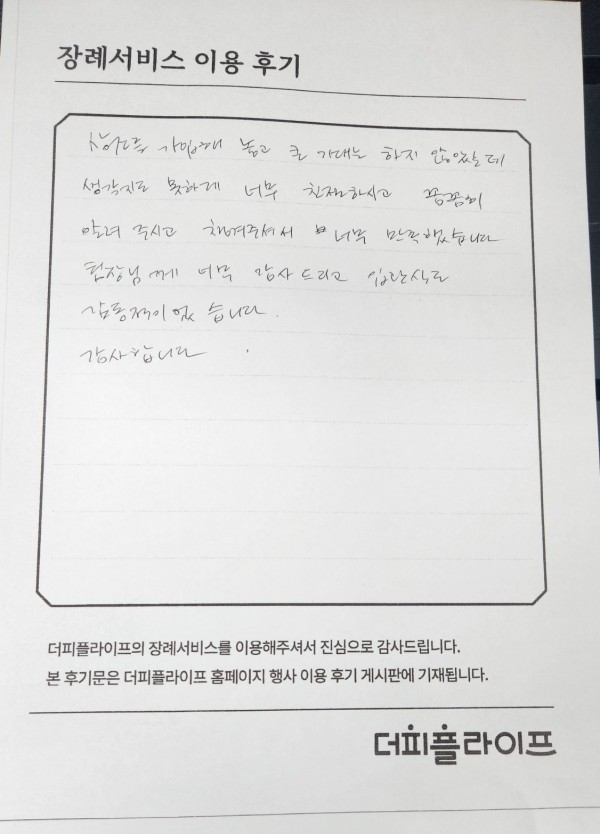 장례서비스 이용 후기
상조를 가입해 놓고 큰 기대는 하지 않았는데
생각지도 못하게 너무 친절하시고 꼼꼼히
알려 주시고 챙겨주셔서 너무 만족했습니다
팀장님께 너무 감사드리고 입관식도
감동적이었습니다.
감사합니다.
더피플라이프의 장례서비스를 이용해주셔서 진심으로 감사드립니다.
본 후기문은 더피플라이프 홈페이지 행사 이용 후기 게시판에 기재됩니다.
더피플라이프